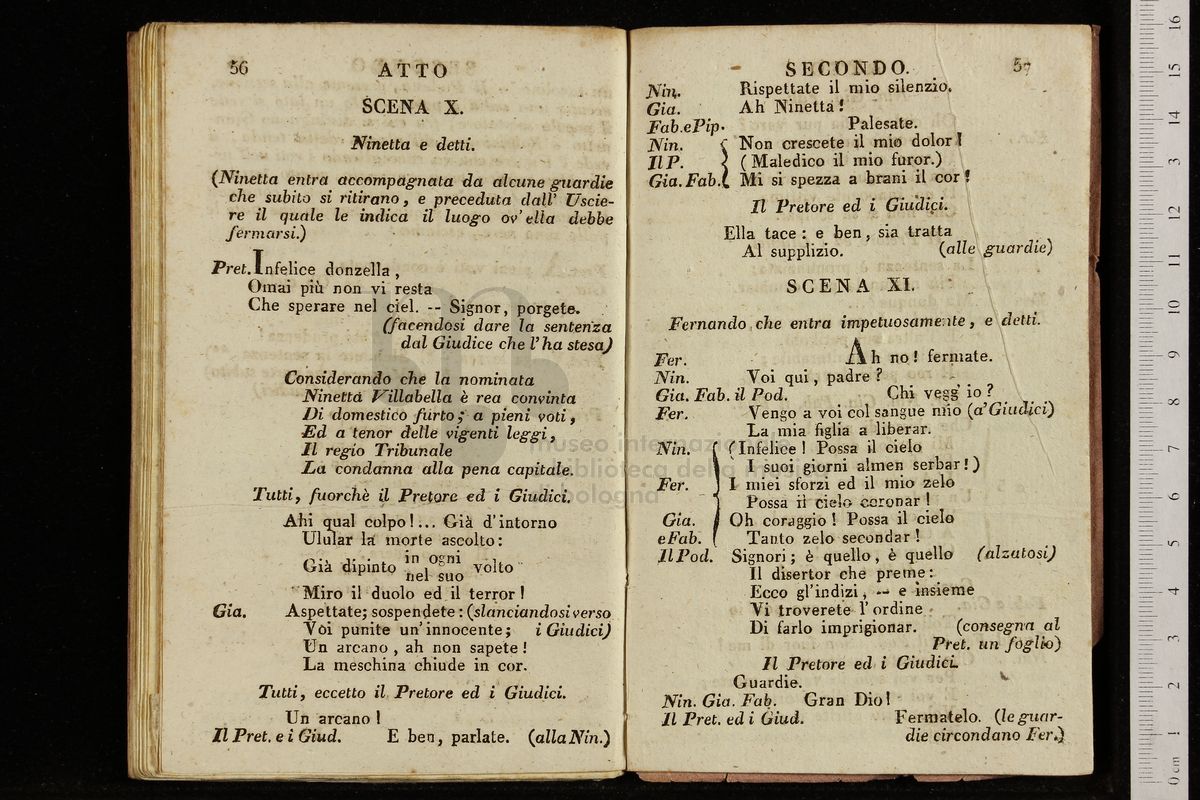 56
ATTO
SCENA X.
Ninetta e detti.
(Ninetta entra accompagnata da alcune guardie
che subito si ritirano, e preceduta dall' Uscie-
re il quale le indica il luogo ov' ella debbe
fermarsi.)
Pret. Infelice donzella,
Omai più non vi resta
Che sperare nel ciel. -- Signor, porgete.
(facendosi dare la sentenza
dal Giudice che l'ha stesa)
Considerando che la nominata
Ninetta Villabella è rea convinta
Di domestico furto; a pieni voti,
Ed a tenor delle vigenti leggi,
Il regio Tribunale
La condanna alla pena capitale.
Tutti, fuorchè il Pretore ed i Giudici.
Ahi qual colpo!... Già d'intorno
Ulular la morte ascolto:
Già dipinto in ogni volto
nel suo
Miro il duolo ed il terror!
Gia. Aspettate; sospendete: (slanciandosi verso
Voi punite un' innocente; i Giudici)
Un arcano, ah non sapete!
La meschina chiude in cor.
Tutti, eccetto il Pretore ed i Giudici.
Un arcano!
Il Pret. e i Giud. E ben, parlate. (alla Nin.)
SECONDO.
57
Nin. Rispettate il mio silenzio.
Gia. Ah Ninetta!
Fab. e Pip. Palesate.
Nin. Non crescete il mio dolor!
Il P. (Maledico il mio furor.)
Gia. Fab. Mi si spezza a brani il cor!
Il Pretore ed i Giudici.
Ella tace: e ben, sia tratta
Al supplizio. (alle guardie)
SCENA XI.
Fernando che entra impetuosamente, e detti.
Fer. Ah no! fermate.
Nin. Voi qui, padre?
Gia. Fab. il Pod. Chi vegg' io?
Fer. Vengo a voi col sangue mio (a' Giudici)
La mia figlia a liberar.
Nin. (Infelice! Possa il cielo
I suoi giorni almen serbar!)
Fer. I miei sforzi ed il mio zelo
Possa il cielo coronar!
Gia. Oh coraggio! Possa il cielo
e Fab. Tanto zelo secondar!
Il Pod. Signori; è quello, è quello (alzatosi)
Il disertor che preme:
Ecco gl'indizi, -- e insieme
Vi troverete l'ordine
Di farlo imprigionar. (consegna al
Pret. un foglio)
Il Pretore ed i Giudici.
Guardie.
Nin. Gia. Fab. Gran Dio!
Il Pret. ed i Giud. Fermatelo. (le guar-
die circondano Fer.)
museo internazionale
e biblioteca della musica
di bologna
0 cm 1 2 3 4 5 6 7 8 9 10 11 12 13 14 15 16